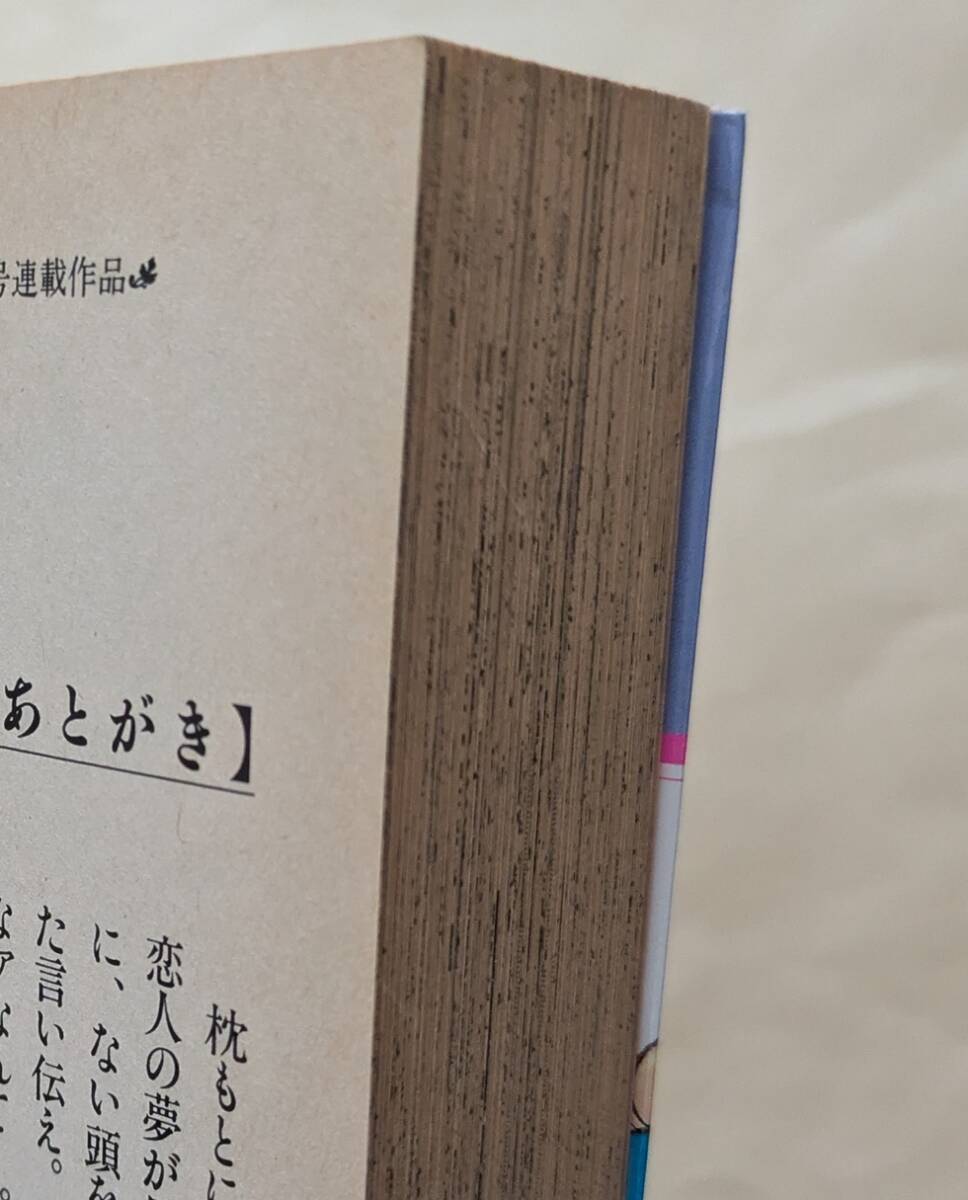 号連載作品
あとがき】
枕もとに
恋人の夢が
に、ない頭を
た言い伝え。